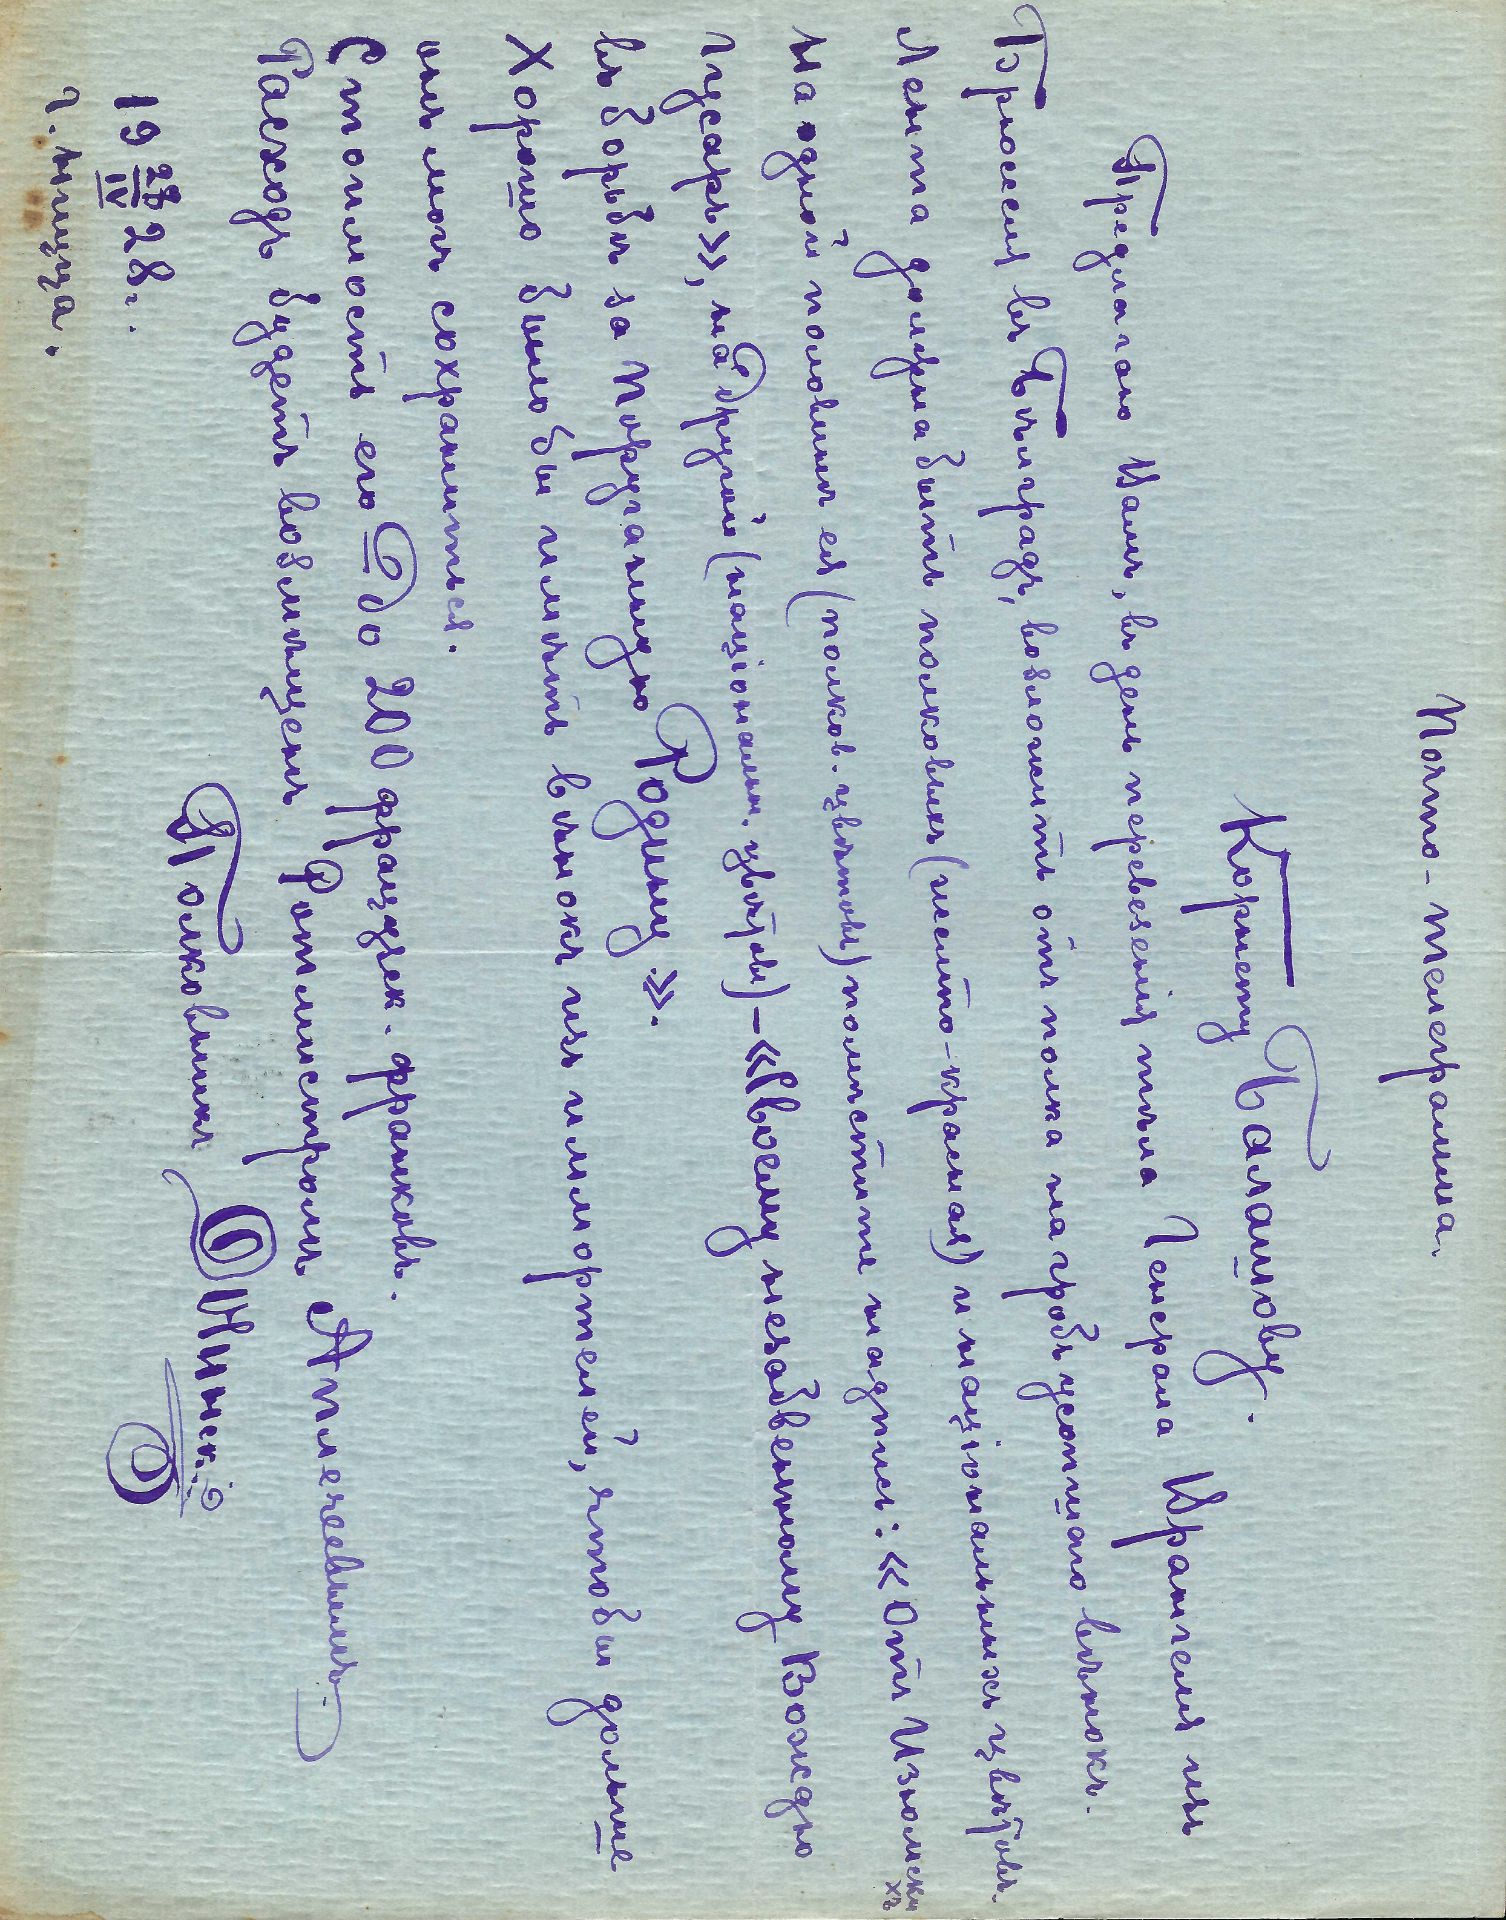 Почто-телеграмма.
Корнету Балашову.
Предлагаю Вамъ, въ день перевезенія тѣла Генерала Врангеля изъ
Брюсселя въ Бѣлградъ, возложить отъ полка на гробъ усопшаго вѣнокъ.
Лента должна быть полковыхъ (желто-красная) и національныхъ цвѣтовъ.
На одной половинѣ ея (полков. цвѣтовъ) помѣстите надпись: «Отъ Изюмскихъ
Гусаръ», на другой (національн. цвѣтовъ) – «Своему незабвенному Вождю
въ борьбѣ за Поруганную Родину».
Хорошо было бы имѣть вѣнокъ изъ имортелей, чтобы дольше
онъ могъ сохраниться.
Стоимость его до 200 француск. франковъ.
Расходъ будетъ возмѣщенъ Ротмистромъ Аплечеевымъ.
Полковникъ
19 28/IV 28 г.
г. Ницца.